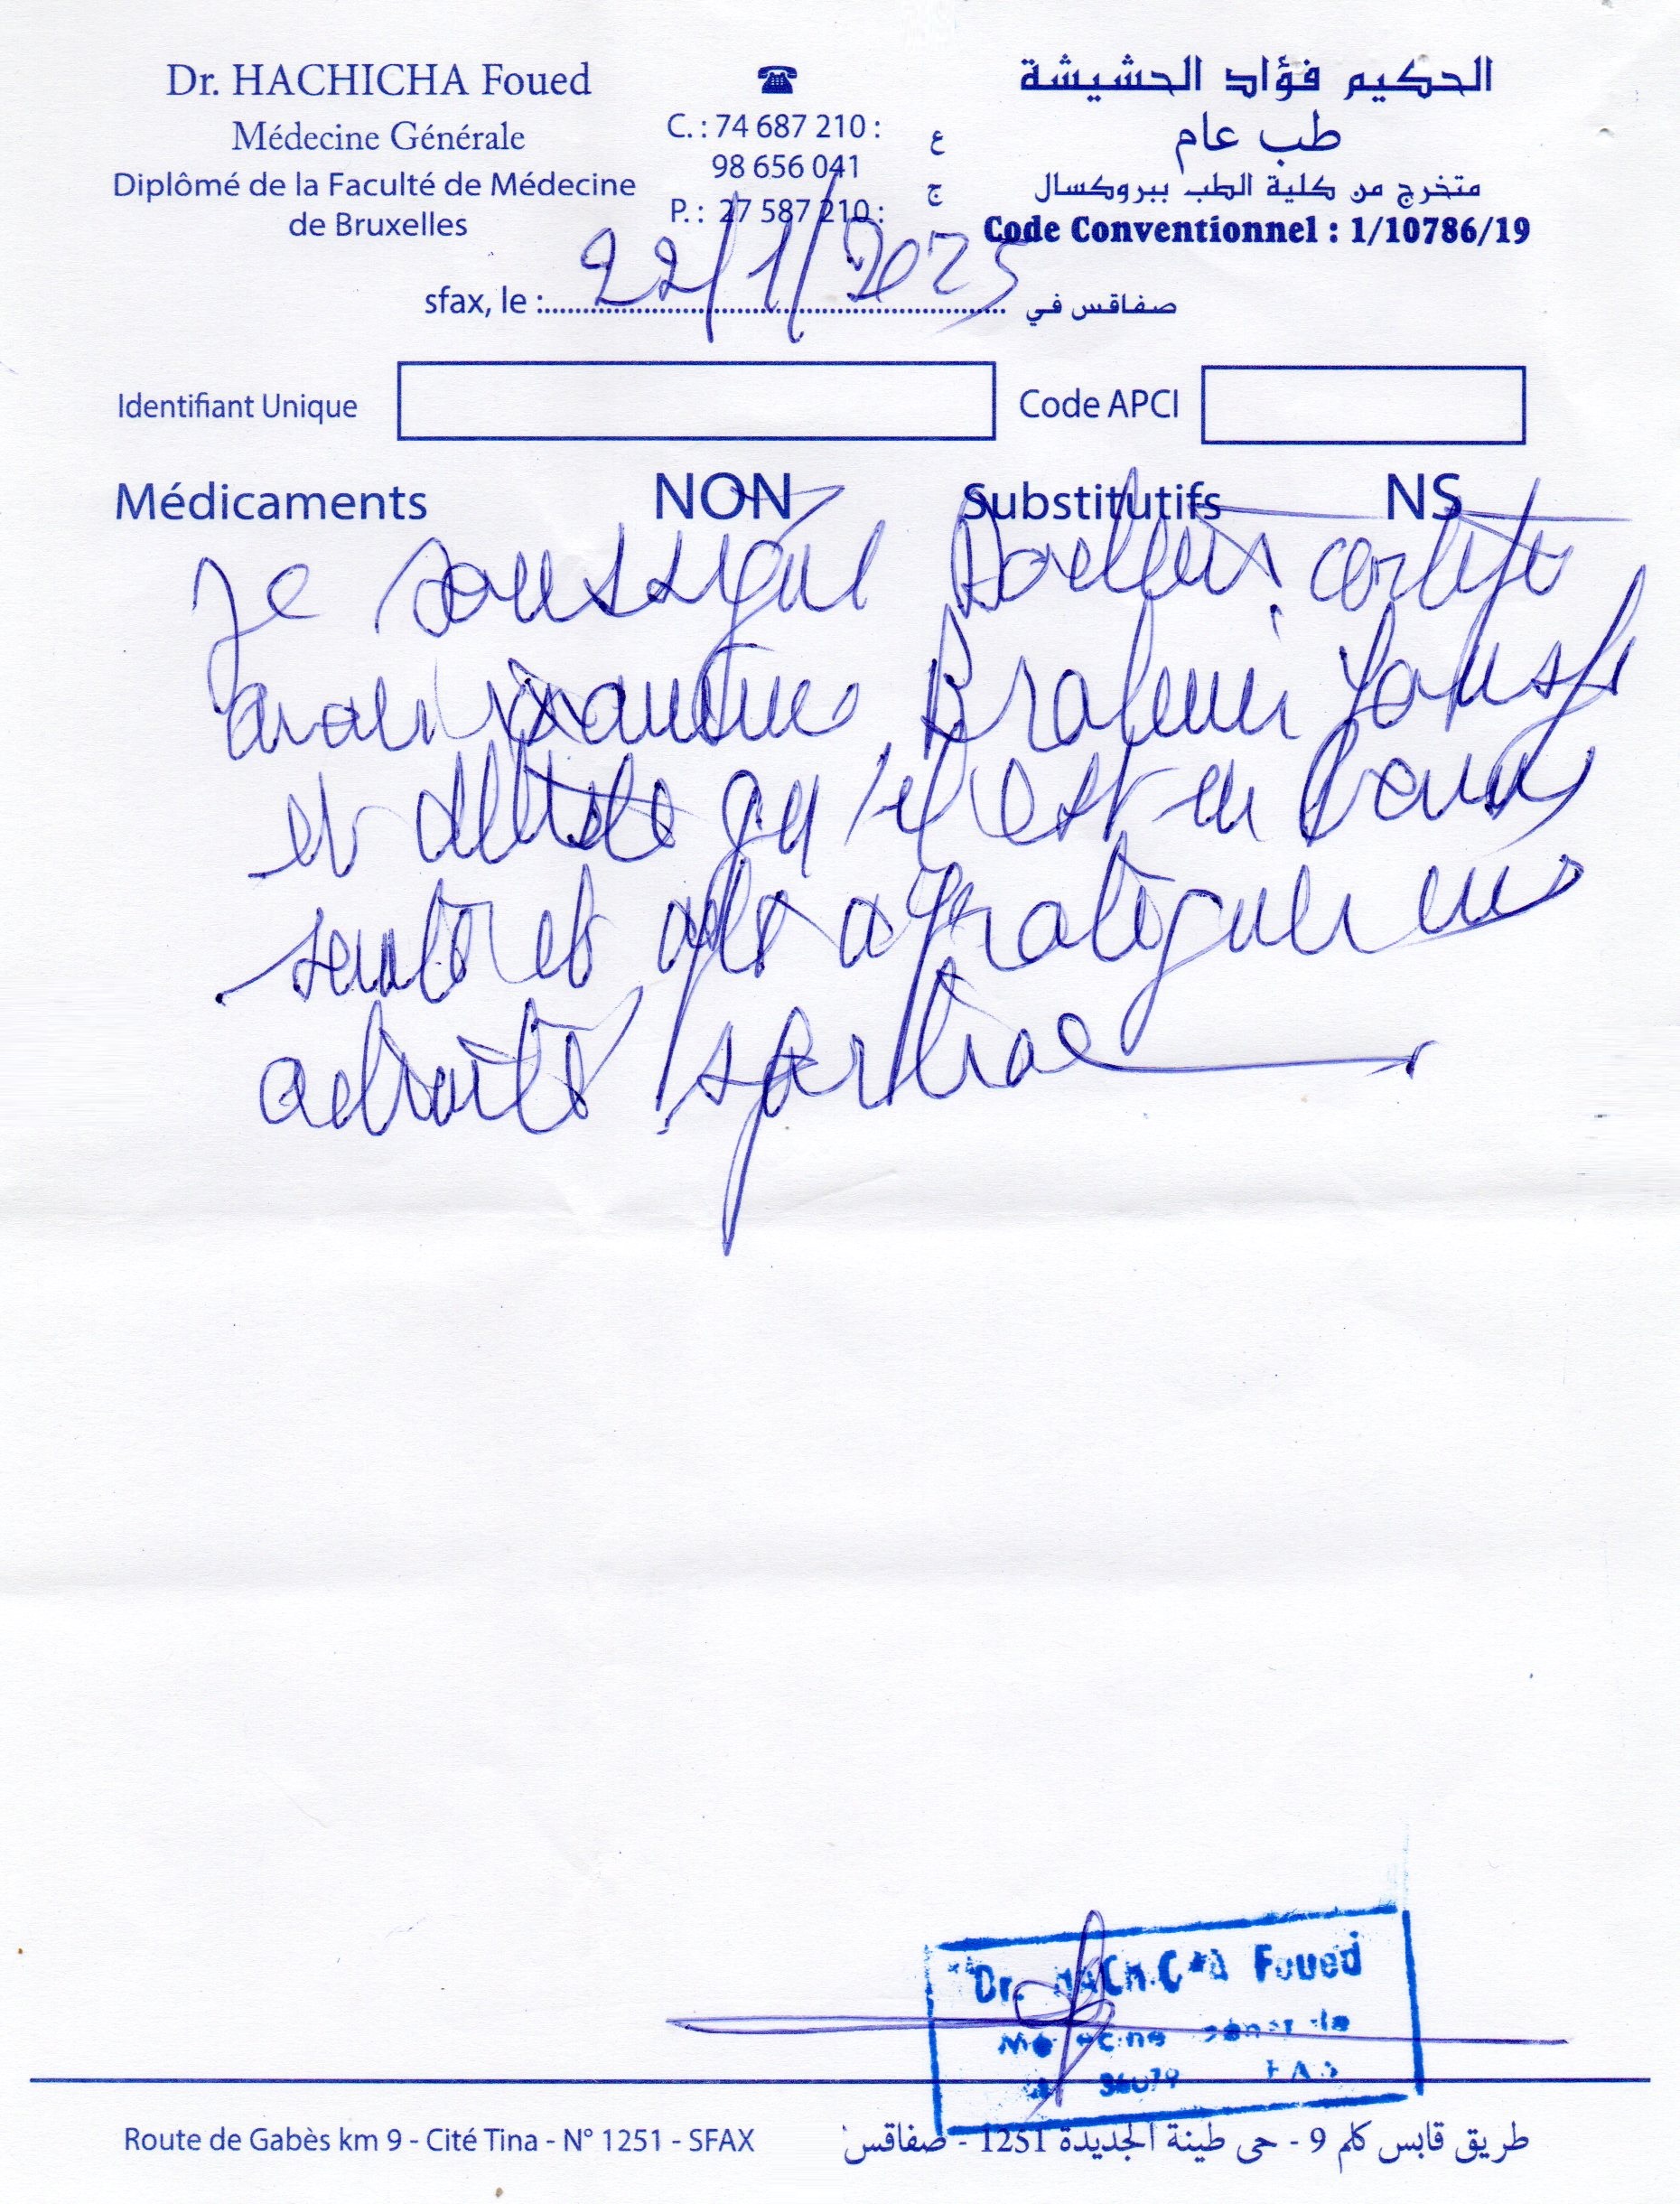 Dr. HACHICHA Foued
Médecine Générale
Diplômé de la Faculté de Médecine
de Bruxelles
C. : 74 687 210 : ع
98 656 041
P. : 27 587 210 : ج
الحكيم فؤاد الحشيشة
طب عام
متخرج من كلية الطب ببروكسال
Code Conventionnel : 1/10786/19
sfax, le : 22/1/2025 صفاقس في
Identifiant Unique Code APCI
Médicaments NON Substitutifs NS
Je soussigné Docteur certifie
avoir examiné Brahmi Youssef
et atteste qu'il est en bonne
santé et apte a pratiquer une
activité sportive
Dr. HACHICHA Foued
Route de Gabès km 9 - Cité Tina - N° 1251 - SFAX
طريق قابس كلم 9 - حي طينة الجديدة 1251 - صفاقس